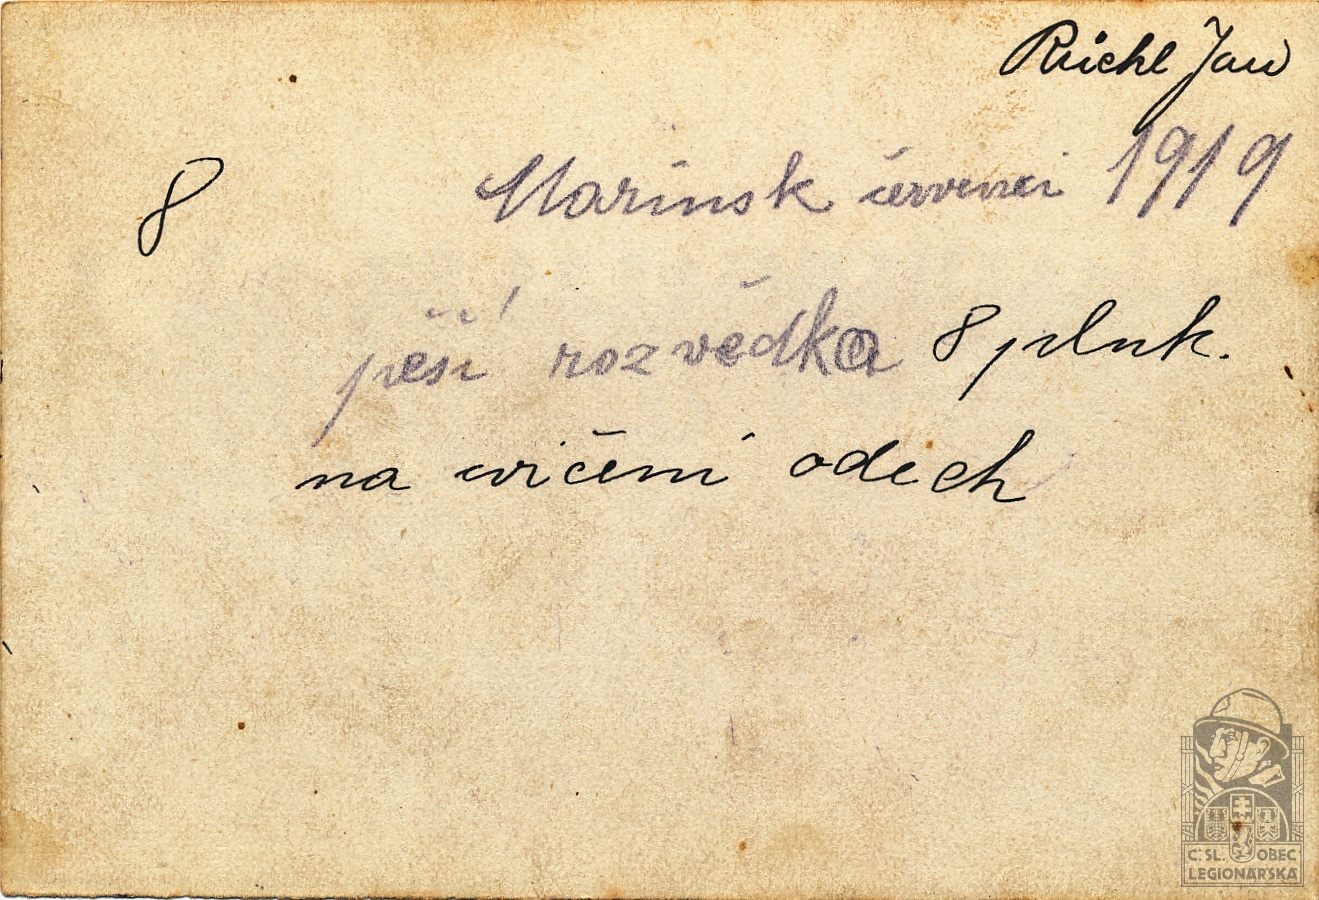 Růchl Jan
8
Marinsk červenci 1919
pěší rozvědka 8 pluk.
na cvičení odech
C.SL. OBEC
LEGIONÁŘSKÁ